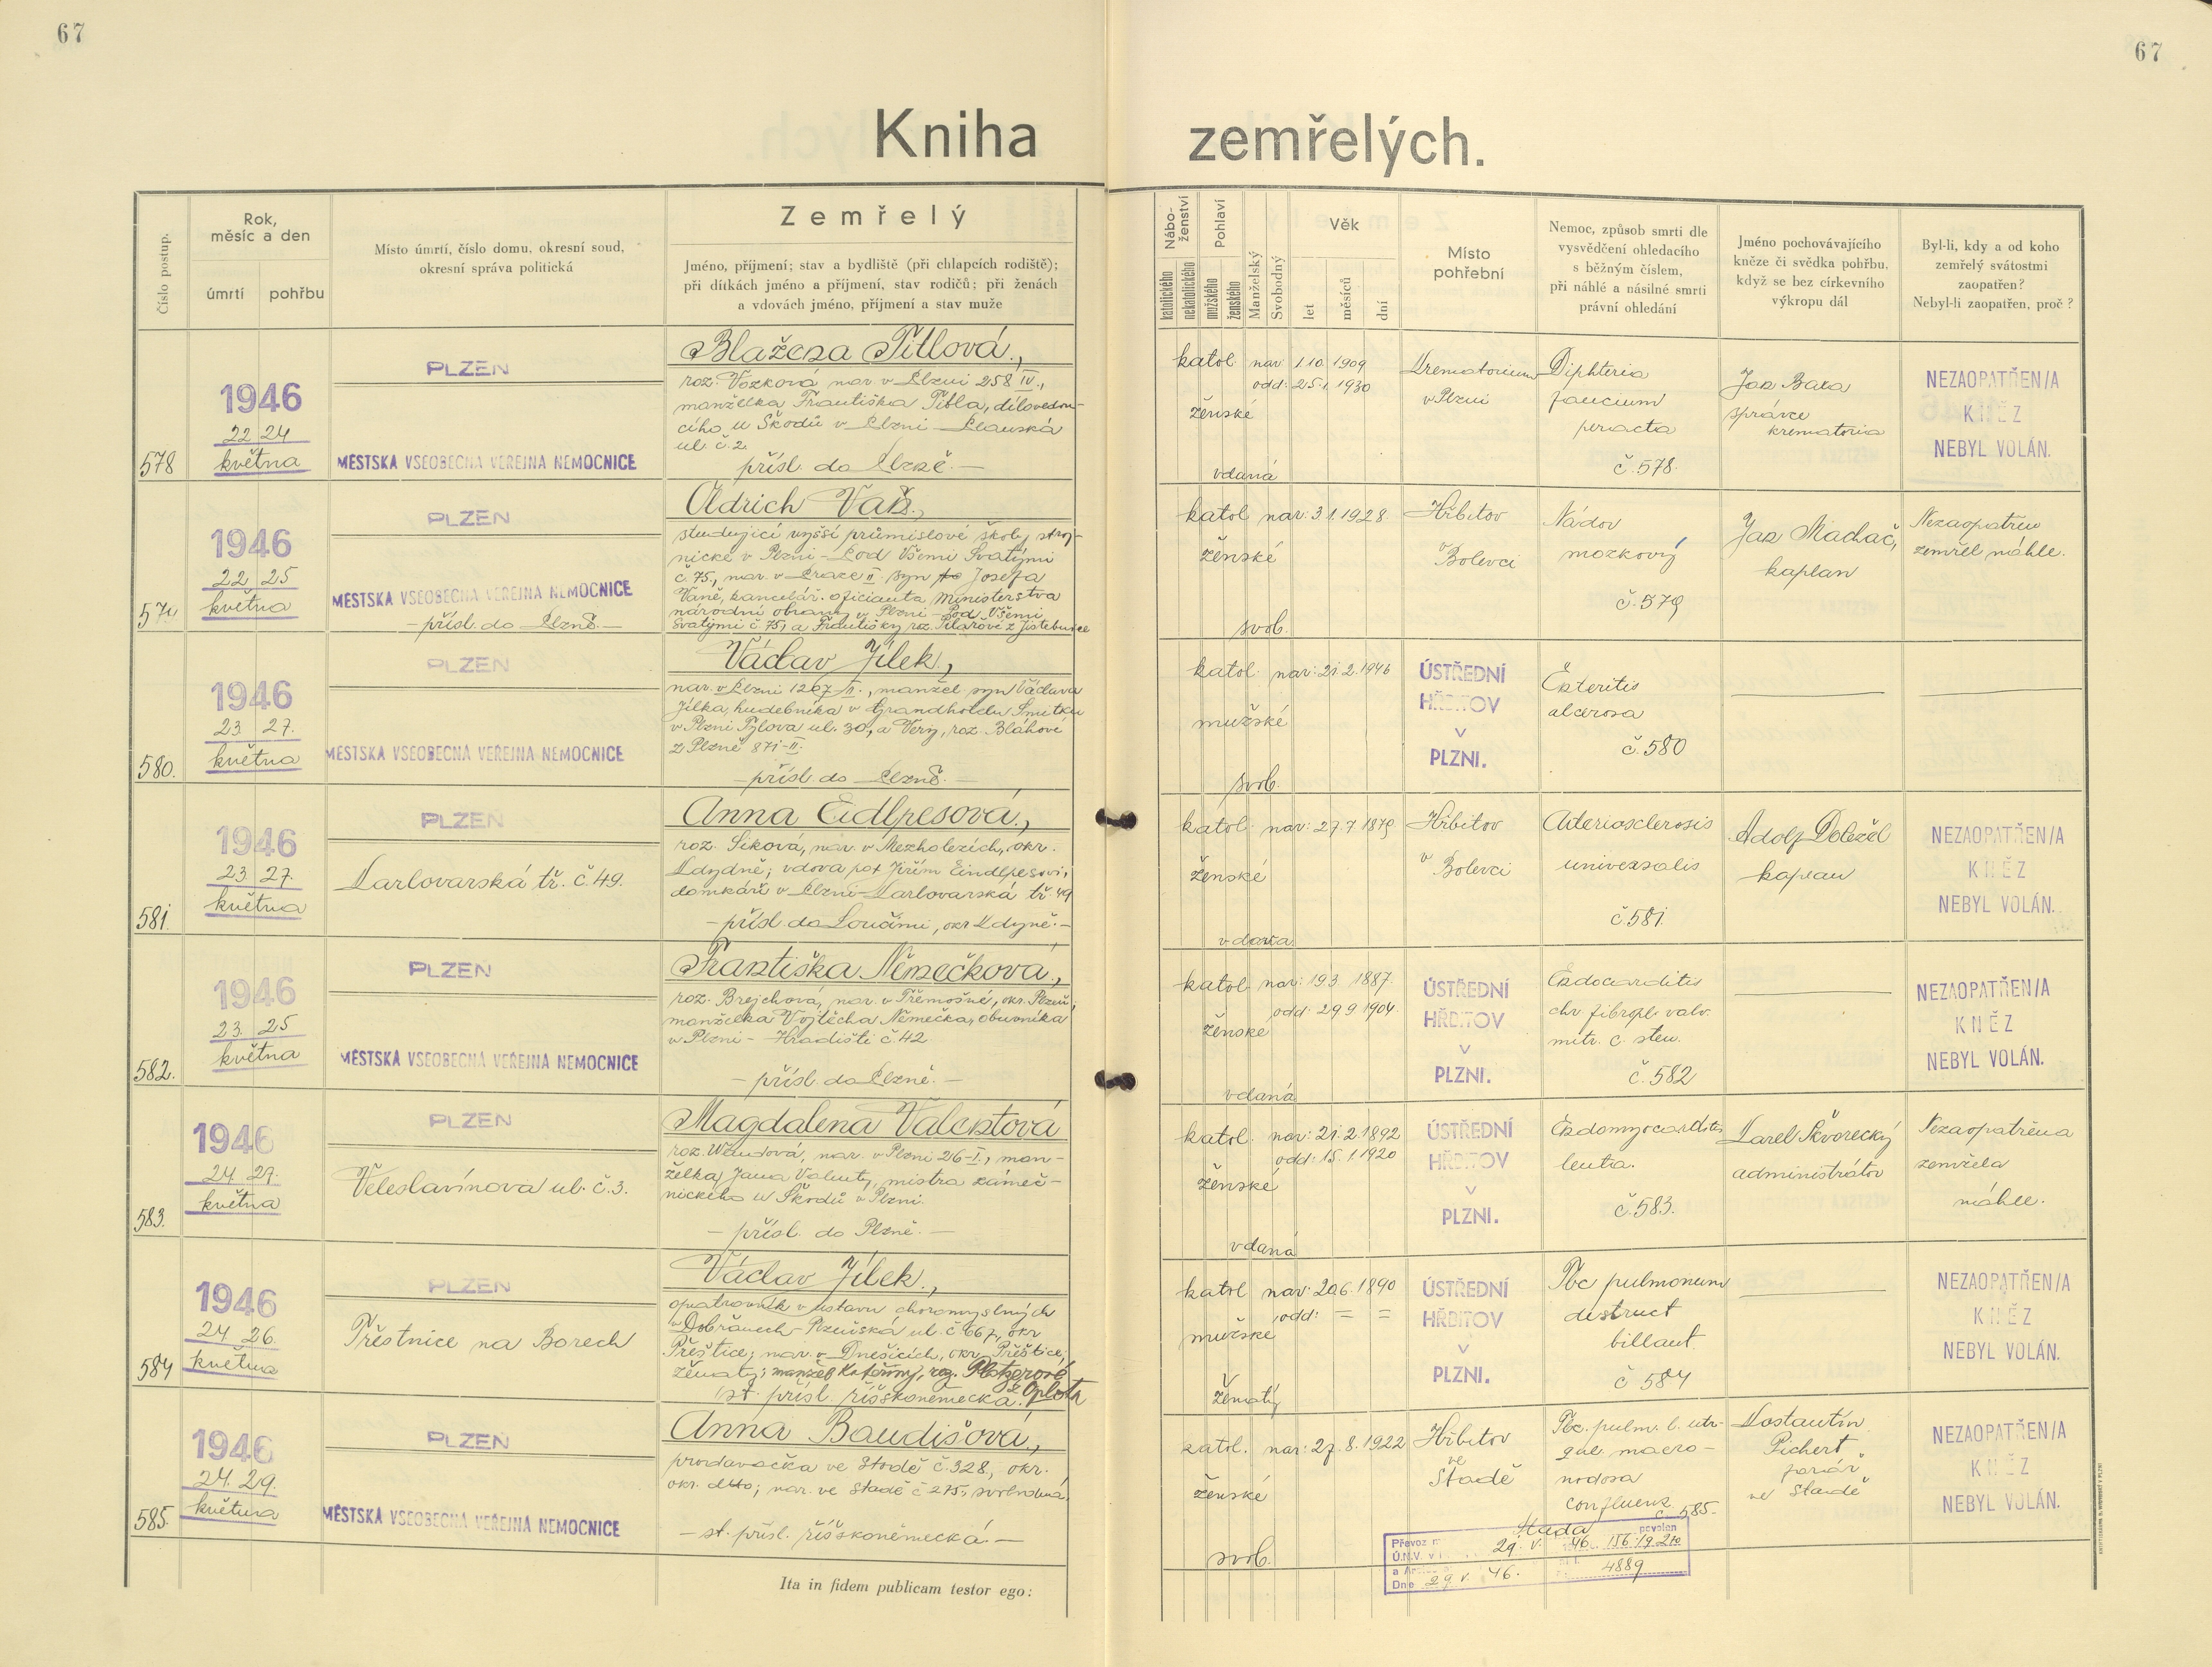 67
67
Kniha zemřelých.
Číslo postup.
Rok, měsíc a den
úmrtí
pohřbu
Místo úmrtí, číslo domu, okresní soud,
okresní správa politická
Zemřelý
Jméno, příjmení; stav a bydliště (při chlapcích rodiště);
při dítkách jméno a příjmení, stav rodičů; při ženách
a vdovách jméno, příjmení a stav muže
Nábo-
ženství
katolického
nekatolického
Pohlaví
mužského
ženského
Manželský
Svobodný
Věk
let
měsíců
dní
Místo
pohřební
Nemoc, způsob smrti dle
vysvědčení ohledacího
s běžným číslem,
při náhlé a násilné smrti
právní ohledání
Jméno pochovávajícího
kněze či svědka pohřbu,
když se bez církevního
výkropu dál
Byl-li, kdy a od koho
zemřelý svátostmi
zaopatřen?
Nebyl-li zaopatřen, proč?
578
1946
22 24
května
PLZEN
MĚSTSKÁ VŠEOBECNÁ VEŘEJNÁ NEMOCNICE
Blažena Titlová,
roz. Vozková nar. v Plzni 258 IV.,
manželka Františka Titla, dílovedou-
cího u Škodů v Plzni
ul. č. 2.
přísl. do Plzně. —
katol.
ženské
vdaná
nar. 1.10. 1909
odd: 25.1. 1930
Krematorium
v Plzni
Diphteria
faucium
peracta
č. 578.
Jan Bara
správce
krematoria
NEZAOPATŘEN/A
KNĚZ
NEBYL VOLÁN.
1946
22 25
května
PLZEN
MĚSTSKÁ VŠEOBECNÁ VEŘEJNÁ NEMOCNICE
— přísl. do Plzně. —
Oldrich Vaň,
studující vyšší průmislové školy stroj-
nické v Plzni – Pod Všemi Svatými
č. 75., nar. v Praze II. syn Josefa
Vaně, kancelář. oficianta Ministerstva
národní obrany v Plzni – Pod Všemi
Svatými č 75, a Františky roz. Pilařové z Jistebnice
katol
ženské
svob.
nar: 3 1. 1928.
Hřbitov
v Bolevci
Nádov
mozkový
č. 579
Jan Machač,
kaplan
Nezaopatřen
zemřel náhle.
580.
1946
23 27.
května
PLZEN
MĚSTSKÁ VŠEOBECNÁ VEŘEJNÁ NEMOCNICE
Václav Jílek,
nar. v Plzni 1207-II., manžel. syn Václava
Jílka, hudebníka v Grandhotelu Smitka
v Plzni Tylova ul. 30, a Very, roz. Bláhové
z Plzně 871-II.
— přísl. do Plzně. —
katol.
mužské
svob.
nar: 21. 2. 1946
ÚSTŘEDNÍ
HŘBITOV
V
PLZNI.
Enteritis
ulcerosa
č. 580
581.
1946
23 27.
května
PLZEN
Karlovarská tř. č. 49.
Anna Eidlpesová,
roz. Siková, nar. v Mezholezích, okr.
Kdydně; vdova po † Jiřím Eindlpesovi,
domkáři v Plzni – Karlovarská tř. 49
— přísl. do Loučimi, okr Kdyně. —
katol.
ženské
vdova
nar: 27. 7 1879
Hřbitov
v Bolevci
Arteriosclerosis
universalis
č. 581.
Adolf Doležal
kaplan
NEZAOPATŘEN/A
KNĚZ
NEBYL VOLÁN.
582.
1946
23. 25
května
PLZEN
MĚSTSKÁ VŠEOBECNÁ VEŘEJNÁ NEMOCNICE
Františka Němečková,
roz. Brejchová, nar. v Třemošné, okr. Plzeň;
manželka Vojtěcha Němečka, obuvníka
v Plzni – Hradišti č. 42
— přísl. do Plzně. —
katol.
ženské
vdaná
nar: 19 3. 1887.
odd: 29 9 1904.
ÚSTŘEDNÍ
HŘBITOV
V
PLZNI.
Endocarditis
chr fibropl. valv.
mitr. c. sten.
č. 582
NEZAOPATŘEN/A
KNĚZ
NEBYL VOLÁN.
583.
1946
24 27.
května
PLZEN
Veleslavínova ul. č. 3.
Magdalena Valentová
roz. Wendová, nar. v Plzni 216-I., man-
želka Jana Valenty, mistra zámeč-
nického u Škodů v Plzni.
— přísl. do Plzně. —
katol.
ženské
vdaná
nar: 21. 2. 1892
odd: 15. 1. 1920
ÚSTŘEDNÍ
HŘBITOV
V
PLZNI.
Endomyocarditis
lenta.
č. 583.
Karel Škvorecký
administrátor
Nezaopatřena
zemřela
náhle.
584
1946
24 26.
května
PLZEN
Trestnice na Borech
Václav Jílek,
opatrovník v ústavu choromyslných
v Dobřanech – Plzeňská ul. č. 667, okr
Přeštice; nar. v Dnešicích, okr. Přeštice;
ženatý; manžel Kateřiny, roz.
z Oplota
st. přísl. říšskoněmecká.
katol
mužské
ženatý
nar: 20.6. 1890
odd: = =
ÚSTŘEDNÍ
HŘBITOV
V
PLZNI.
Tbc pulmonum
destruct
billaut.
č 584
NEZAOPATŘEN/A
KNĚZ
NEBYL VOLÁN.
585.
1946
24. 29.
května
PLZEN
MĚSTSKÁ VŠEOBECNÁ VEŘEJNÁ NEMOCNICE
Anna Baudišová,
prodavačka ve Stodě č. 328, okr.
okr. dtto; nar. ve Stodě č 275, svobodná,
— st. přísl. říšskoněmecká. —
katol.
ženské
svob.
nar: 27. 8. 1922
Hřbitov
ve
Stodě
Tbc. pulm. l. utr-
que macro-
nodosa
confluens
č. 585.
Kostantín
Pichert
farář
ve Stodě
NEZAOPATŘEN/A
KNĚZ
NEBYL VOLÁN.
Převoz
povolen
Ú.N.V. v
29. V. 46.
Dne 29 V. 46.
4889
Ita in fidem publicam testor ego: